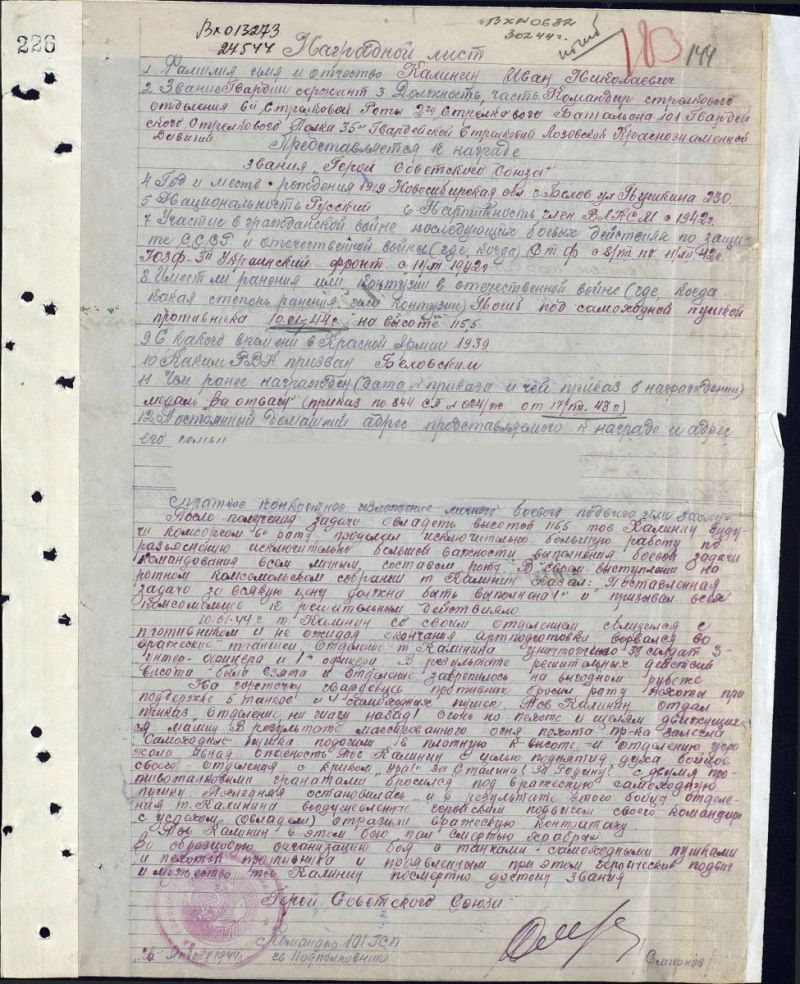 226
Вх 013273
24544
Вх № 0632
30244г.
183
144
Наградной лист
1 Фамилия имя и отчество Калинин Иван Николаевич
2. Звание Гвардии сержант 3 Должность, часть Командир стрелкового
отделения 6й Стрелковой Роты 2го Стрелкового Баталь­она 101 Гвардей
ского Стрелкового Полка 35й Гвардейской Стрелковой Лозовской Краснознаменной
Дивизии
Представляется к награде
Звания „Герой Советского Союза"
4 Год и место рождения 1919 Новосибирская обл. г. Белов ул Пушкина 230.
5 Национальность Русский 6 Партийность член ВЛКСМ с 1942г.
7 Участие в гражданской войне последующих боевых действиях по защи
те СССР и отечественной войны (где, когда) Ст ф с
ЮЗФ-3й Украинский фронт с 1942г
8. Имеет ли ранения или контузии в отечественной войне (где, когда
какая степень ранения или контузии) Погиб под самоходной пушкой
противника 10.01.44г. на высоте 115 5
9 С какого времени в Красной Армии 1939
10 Каким РВК призван Беловским
11 Чем ранее награжден (дата № приказа и чей приказ о награждении)
медаль „За отвагу" (приказ по 844 СП № 024/н от 43г)
12 Постоянный домашний адрес представляемого к награде и адрес
его семьи
Краткое конкретное изложение личного боевого подвига или заслуг
После получения задачи овладеть высотой тов Калинин буду
чи комсоргом проделал исключительно большую работу по
разъяснению исключительно большой важности выполнения боевой задачи
командования всем личным составом роты. В своем выступлении на
ротном комсомольском собрании т Калинин сказал: „Поставленная
задача за всякую цену должна быть выполнена!" и призывал всех
комсомольцев к решительным действиям
10.01.44г т. Калинин со своим отделением сблизился с
противником и не ожидая окончания артподготовки ворвался во
вражеские траншеи. Отделение т Калинина уничтожено солдат 3-
унтер-офицера и 1го офицера В результате решительных действий
высота была взята и отделение закрепилось на выгодном рубеже
На горсточку гвардейцев противник бросил роту пехоты при
поддержке 5 танков и 4 самоходных пушек Тов Калинин отдал
приказ „Отделение, ни шагу назад! Огонь по пехоте и щелям движущих-
ся машин В результате массированного огня пехота пр-ка залегла
Самоходные пушки подошли в плотную к высоте и отделению угро
жало опасность Тов Калинин с целью поднятия духа бойцов
своего отделения с криком „Ура! За Сталина! За Родину!" с двумя про-
тивотанковыми гранатами бросился под вражескую самоходную
пушку Последняя остановилась и в результате этого бойцы отделе-
ния т. Калинина воодушевленные геройским подвигом своего командира
с успехом (овладели) отразили вражескую контратаку.
Тов Калинин в этом бою пал смертью храбрых
За образцовую организацию боя с танками самоходными пушками
и пехотой противника и проявленным при этом героический подвиг
и мужество тов Калинин посмертно достоин звания
Герой Советского Союза
Командир 101 ГСП
гв Подполковник
Смирнов
„ " Января 1944г